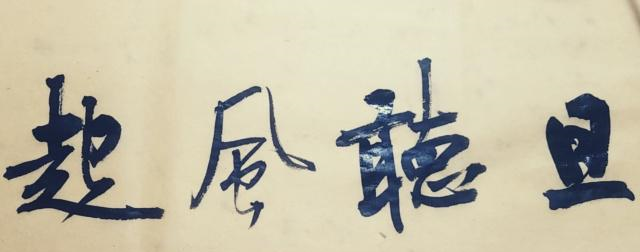 且聽風起